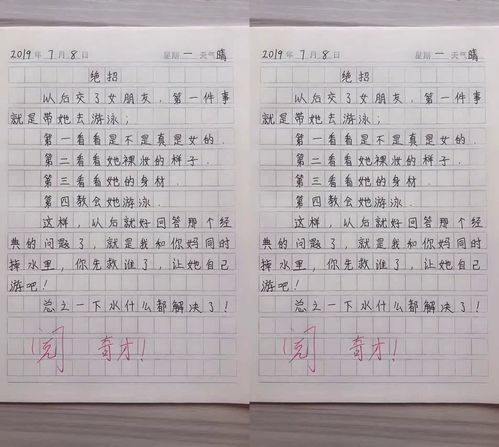 2019年7月8日 星期一 天气晴
绝招
以后交了女朋友，第一件事
就是带她去游泳；
第一看看是不是真是女的.
第二看看她裸妆的样子.
第三看看她的身材.
第四教会她游泳.
这样，以后就好回答那个经
典的问题了，就是我和你妈同时
掉水里，你先救谁了，让她自己
游吧！
总之一下水什么都解决了！
阅 奇才！
2019年7月8日 星期一 天气晴
绝招
以后交了女朋友，第一件事
就是带她去游泳；
第一看看是不是真是女的.
第二看看她裸妆的样子.
第三看看她的身材.
第四教会她游泳.
这样，以后就好回答那个经
典的问题了，就是我和你妈同时
掉水里，你先救谁了，让她自己
游吧！
总之一下水什么都解决了！
阅 奇才！